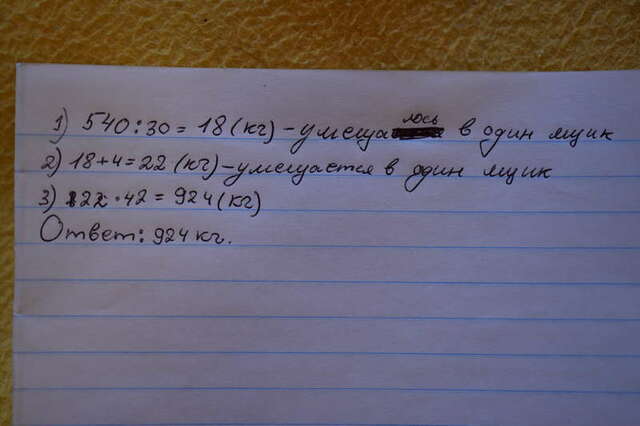 1) 540:30=18(кг)-умещалось в один ящик
2) 18+4=22(кг)-умещается в один ящик
3) 22·42=924(кг)
Ответ: 924кг.